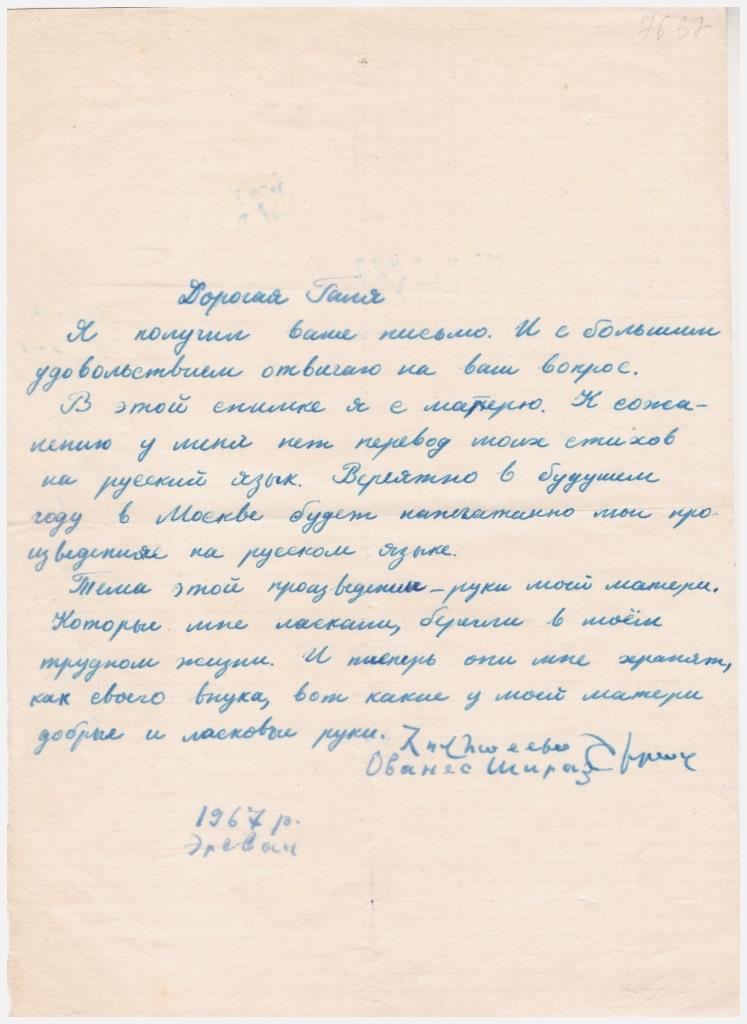 7637
Дорогая Галя
Я получил ваше письмо. И с большим
удовольствием отвичаю на ваш вопрос.
В этой снимке я с матерю. К сожа-
лению у меня нет перевод моих стихов
на русский язык. Вереятно в будушем
году в Москве будет напечатанно мои про-
изведенияе на русском языке.
Тема этой произведении – руки моей матери.
Которые мне ласкали, берегли в моём
трудном жизни. И тиеперь они мне хранят,
как своего внука, вот какие у моей матери
добрые и ласковые руки.
Ованес Шираз
1967 р.
Эреван